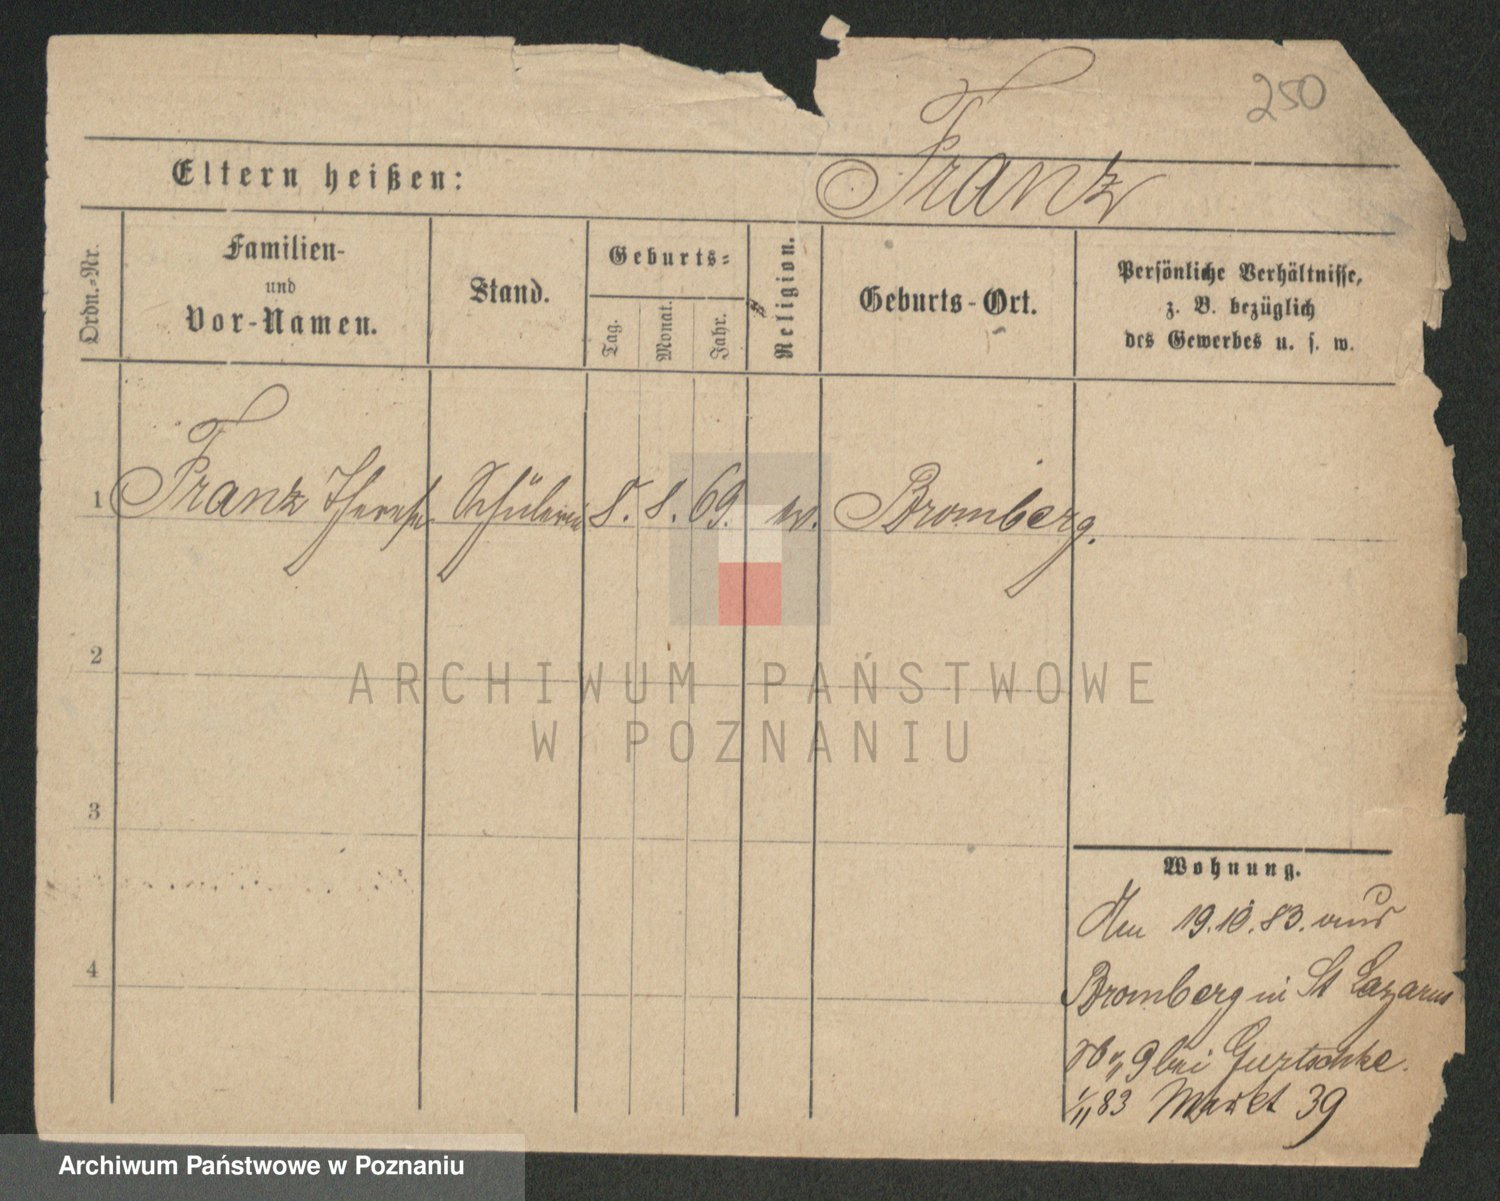 250
Franz
Eltern heißen:
Ordn.-Nr.
Familien-
und
Vor-Namen.
Stand.
Geburts-
Tag.
Monat.
Jahr.
Religion.
Geburts-Ort.
Persönliche Verhältnisse,
z. B. bezüglich
des Gewerbes u. s. w.
1 Franz Therese Schülerin 8. 8. 69. ev. Bromberg.
2
3
4
ARCHIWUM PAŃSTWOWE
W POZNANIU
Wohnung.
19.10.83. aus
Bromberg in St Lazarus
No 9 bei Gurtschke.
1/11 83 Markt 39
Archiwum Państwowe w Poznaniu